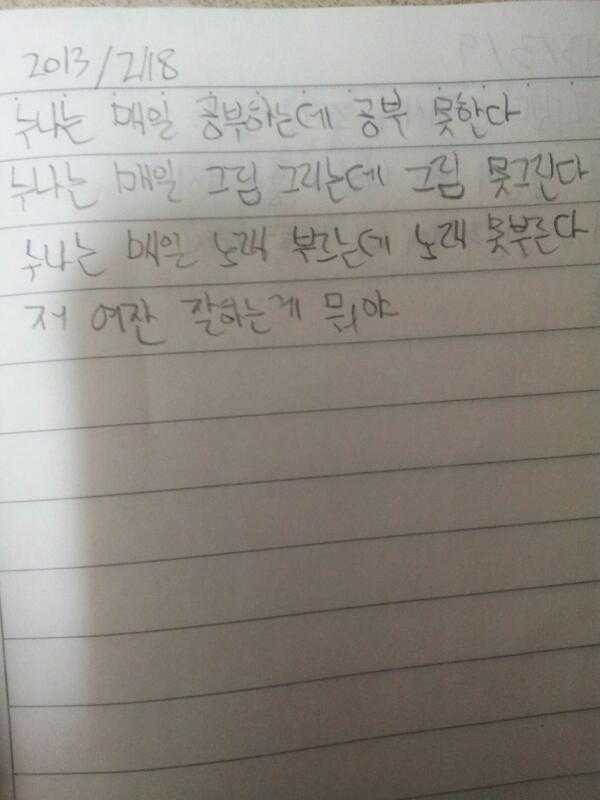 2013/2/18
누나는 매일 공부하는데 공부 못한다
누나는 매일 그림 그리는데 그림 못그린다
누나는 매일 노래 부르는데 노래 못부른다
저 여잔 잘하는게 뭐야